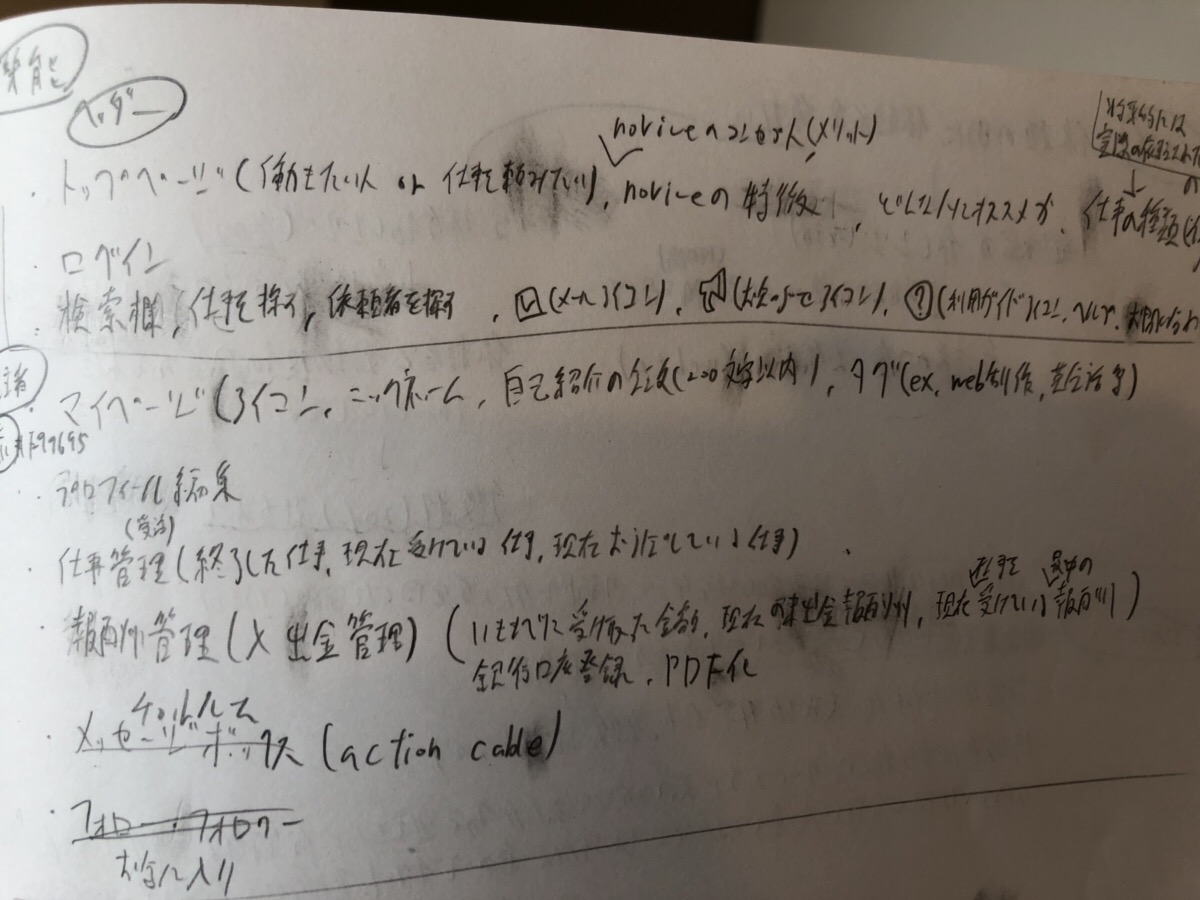 機能
ヘッダー
noviceのコンセプト(メリット)
将来的には
実際の
・トップページ(働きたい人 or 仕事を頼みたい)、noviceの特徴、どんな人にオススメか、仕事の種類(
・ログイン
・検索欄, 仕事を探す, 依頼者を探す, (メールアイコン), (お知らせアイコン), ?(利用ガイドアイコン, ヘルプ,
・マイページ(アイコン, ニックネーム, 自己紹介の全文(200文字以内), タグ(ex, web制作, 英会話 等)
・プロフィール編集
(受注)
・仕事管理(終了した仕事, 現在受けている仕事, 現在お願いしている仕事)
・報酬管理(入出金管理) (いままでに受け取った金額, 現在の未出金報酬, 現在受けている報酬)
銀行口座登録, PDF化
チャットルーム
・メッセージボックス (action cable)
・フォロー・フォロワー
お気に入り